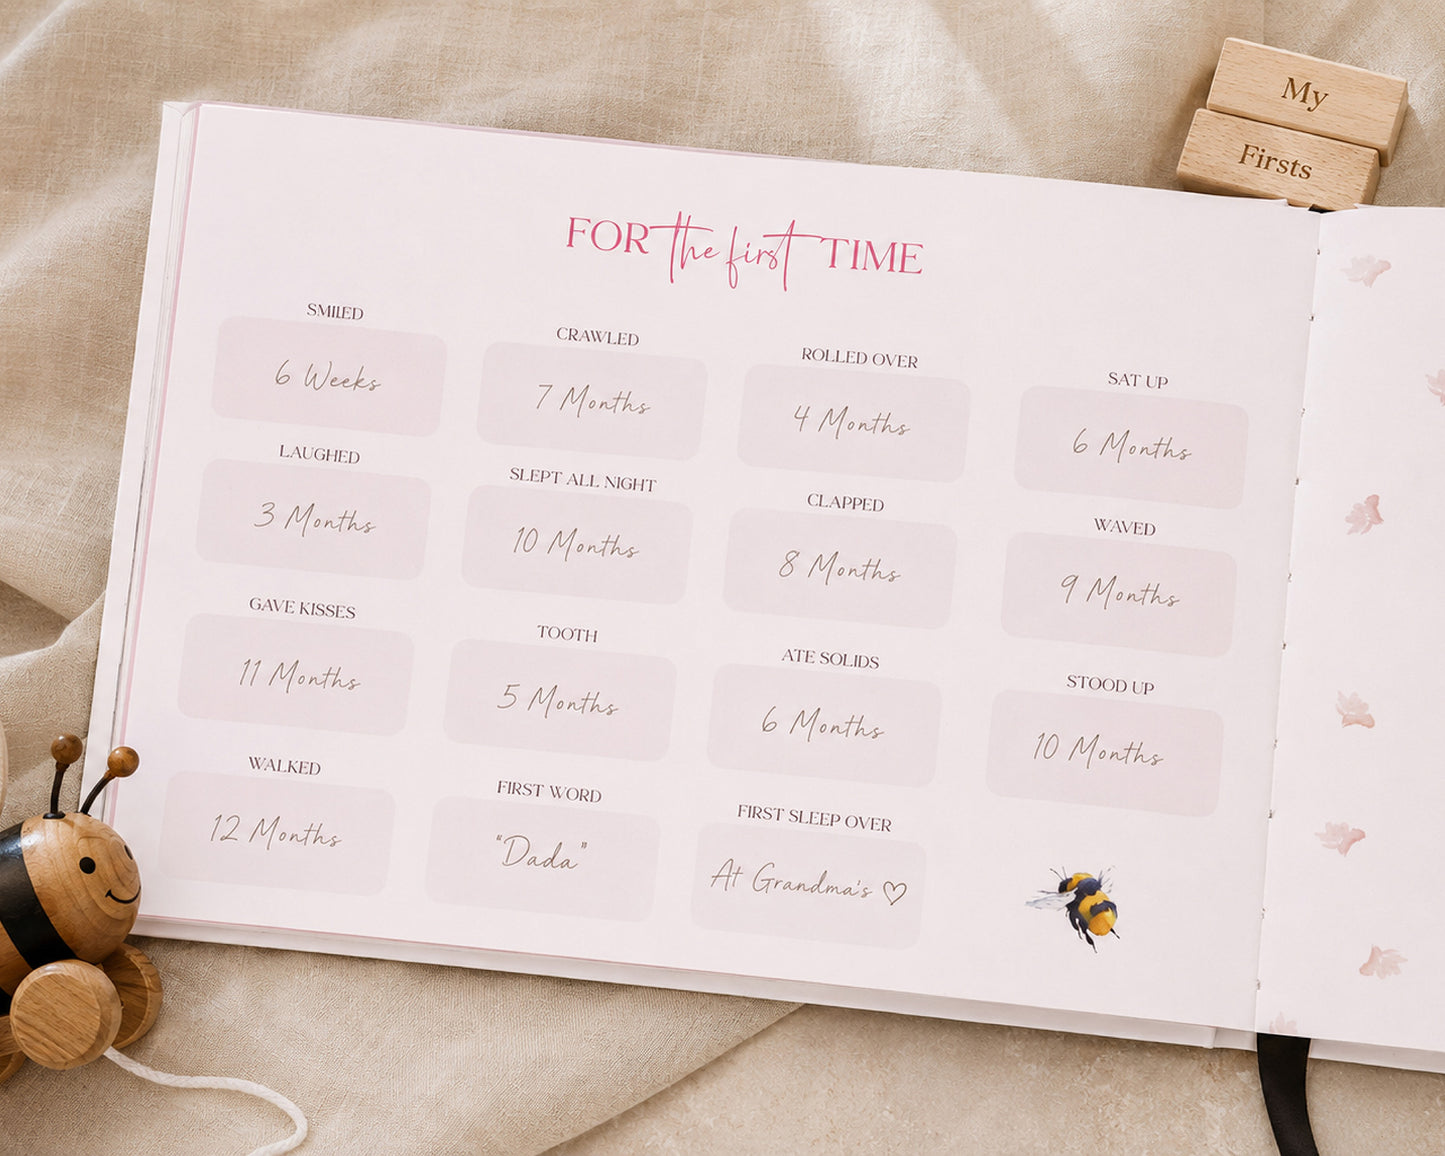 My
Firsts
FOR the first TIME
SMILED
6 Weeks
CRAWLED
7 Months
ROLLED OVER
4 Months
SAT UP
6 Months
LAUGHED
3 Months
SLEPT ALL NIGHT
10 Months
CLAPPED
8 Months
WAVED
9 Months
GAVE KISSES
11 Months
TOOTH
5 Months
ATE SOLIDS
6 Months
STOOD UP
10 Months
WALKED
12 Months
FIRST WORD
"Dada"
FIRST SLEEP OVER
At Grandma's ♡